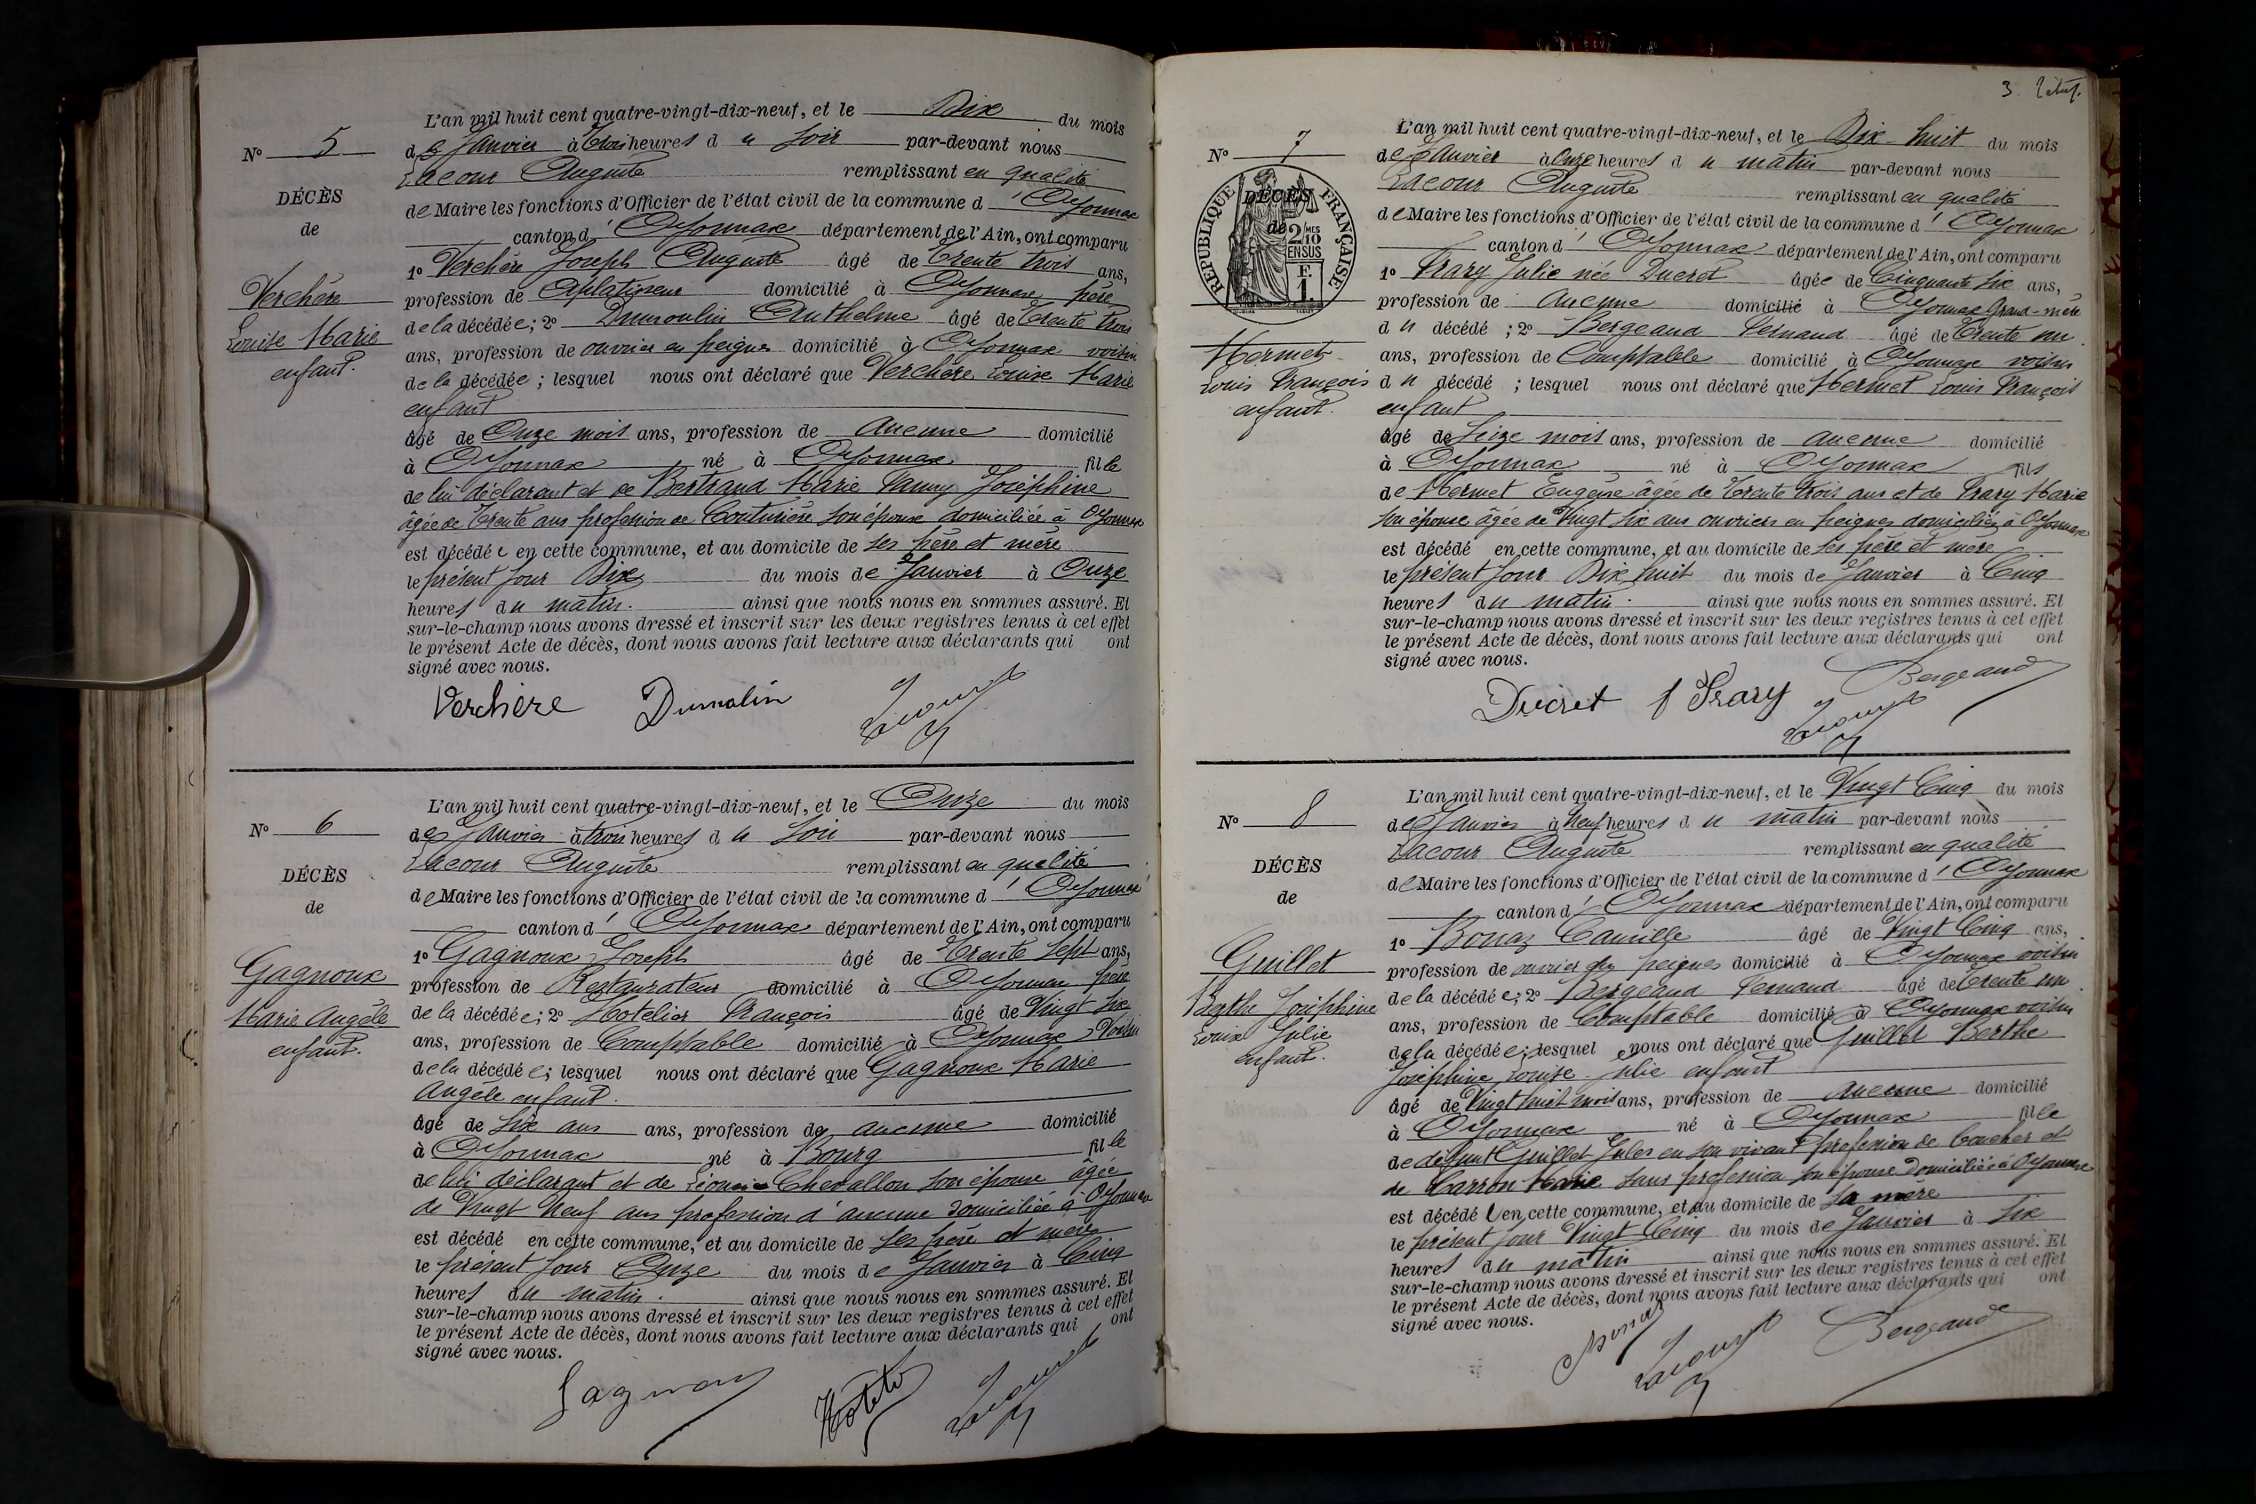 L'an mil huit cent quatre-vingt-dix-neuf, et le Dix du mois
N° 5
de Janvier à trois heures du soir par-devant nous
Lacour Auguste remplissant en qualité
DÉCÈS
de Maire les fonctions d'Officier de l'état civil de la commune d'Oyonnax
de
canton d'Oyonnax département de l'Ain, ont comparu
1° Verchère Joseph Auguste âgé de Trente trois ans,
Verchère
profession de domicilié à Oyonnax père
de la décédée; 2° Dumoulin Anthelme âgé de Trente trois
Louise Marie
ans, profession de ouvrier en peignes domicilié à Oyonnax voisin
enfant.
de la décédée; lesquel nous ont déclaré que Verchère Louise Marie
enfant
âgé de Onze mois ans, profession de aucune domicilié
à Oyonnax né à Oyonnax fille
de lui déclarant et de Bertrand Marie Fanny Joséphine
âgée de Trente ans profession de Couturière son épouse domiciliée à Oyonnax
est décédée en cette commune, et au domicile de ses père et mère
le présent jour Dix du mois de Janvier à Onze
heures du matin. ainsi que nous nous en sommes assuré. Et
sur-le-champ nous avons dressé et inscrit sur les deux registres tenus à cet effet
le présent Acte de décès, dont nous avons fait lecture aux déclarants qui ont
signé avec nous.
Verchère Dumolin
L'an mil huit cent quatre-vingt-dix-neuf, et le Onze du mois
N° 6
de Janvier à trois heures du soir par-devant nous
Lacour Auguste remplissant en qualité
DÉCÈS
de Maire les fonctions d'Officier de l'état civil de la commune d'Oyonnax
de
canton d'Oyonnax département de l'Ain, ont comparu
1° Gagnoux Joseph âgé de Trente sept ans,
Gagnoux
profession de Restaurateur domicilié à Oyonnax père
de la décédée; 2° Hotelier François âgé de Vingt six
Marie Angèle
ans, profession de Comptable domicilié à Oyonnax Voisin
enfant.
de la décédée; lesquel nous ont déclaré que Gagnoux Marie
Angèle enfant.
âgé de six ans ans, profession de aucune domicilié
à Oyonnax né à Bourg fille
de lui déclarant et de Chevallon son épouse âgée
de Vingt Neuf ans profession d'aucune domiciliée à Oyonnax
est décédé en cette commune, et au domicile de ses père et mère
le présent jour Onze du mois de Janvier à Cinq
heures du matin. ainsi que nous nous en sommes assuré. Et
sur-le-champ nous avons dressé et inscrit sur les deux registres tenus à cet effet
le présent Acte de décès, dont nous avons fait lecture aux déclarants qui ont
signé avec nous.
3
L'an mil huit cent quatre-vingt-dix-neuf, et le Dix-huit du mois
N° 7
de Janvier à Onze heures du matin par-devant nous
Lacour Auguste remplissant en qualité
RÉPUBLIQUE FRANÇAISE
DÉCÈS
de
2/10 MES
EN SUS
F.
1.
de Maire les fonctions d'Officier de l'état civil de la commune d'Oyonnax
canton d'Oyonnax département de l'Ain, ont comparu
1° Frary Julie née Ducret âgée de Cinquante six ans,
profession de aucune domicilié à Oyonnax Grand-mère
du décédé; 2° Bergeaud Fernand âgé de Trente un
Mermet
ans, profession de Comptable domicilié à Oyonnax voisin
Louis François
du décédé; lesquel nous ont déclaré que Mermet Louis François
enfant.
enfant
âgé de Seize mois ans, profession de aucune domicilié
à Oyonnax né à Oyonnax fils
de Mermet Eugène âgée de Trente trois ans et de Frary Marie
son épouse âgée de Vingt six ans ouvriers en peignes domiciliés à Oyonnax
est décédé en cette commune, et au domicile de ses père et mère
le présent jour Dix huit du mois de Janvier à Cinq
heures du matin. ainsi que nous nous en sommes assuré. Et
sur-le-champ nous avons dressé et inscrit sur les deux registres tenus à cet effet
le présent Acte de décès, dont nous avons fait lecture aux déclarants qui ont
signé avec nous.
Ducret f Frary Bergeaud
L'an mil huit cent quatre-vingt-dix-neuf, et le Vingt Cinq du mois
N° 8
de Janvier à Neuf heures du matin par-devant nous
Lacour Auguste remplissant en qualité
DÉCÈS
de Maire les fonctions d'Officier de l'état civil de la commune d'Oyonnax
de
canton d'Oyonnax département de l'Ain, ont comparu
1° Bonaz Camille âgé de Vingt Cinq ans,
Guillet
profession de ouvrier en peignes domicilié à Oyonnax voisin
de la décédée; 2° Bergeaud Fernand âgé de Trente un
Berthe Joséphine
ans, profession de Comptable domicilié à Oyonnax voisin
Louise Julie
de la décédée; lesquel nous ont déclaré que Guillet Berthe
enfant.
Joséphine Louise Julie enfant
âgé de Vingt huit mois ans, profession de aucune domicilié
à Oyonnax né à Oyonnax fille
de défunt Guillet Jules en son vivant profession de boucher et
de Carron Marie sans profession son épouse domiciliée à Oyonnax
est décédé en cette commune, et au domicile de sa mère
le présent jour Vingt Cinq du mois de Janvier à six
heures du matin ainsi que nous nous en sommes assuré. Et
sur-le-champ nous avons dressé et inscrit sur les deux registres tenus à cet effet
le présent Acte de décès, dont nous avons fait lecture aux déclarants qui ont
signé avec nous.
Bonaz Bergeaud